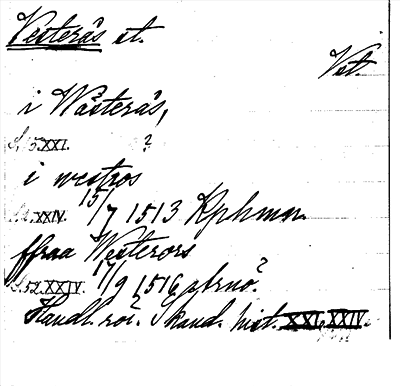 Vesterås st.
Vst.
i Wästerås,
S. 5. XXI. ?
i westros
S. XXIV. 15/7 1513 Kphmn.
ffraa Westerors
S. 52. XXIV. 17/9 1516
Handl. rör. Skand. hist. XXI, XXIV.